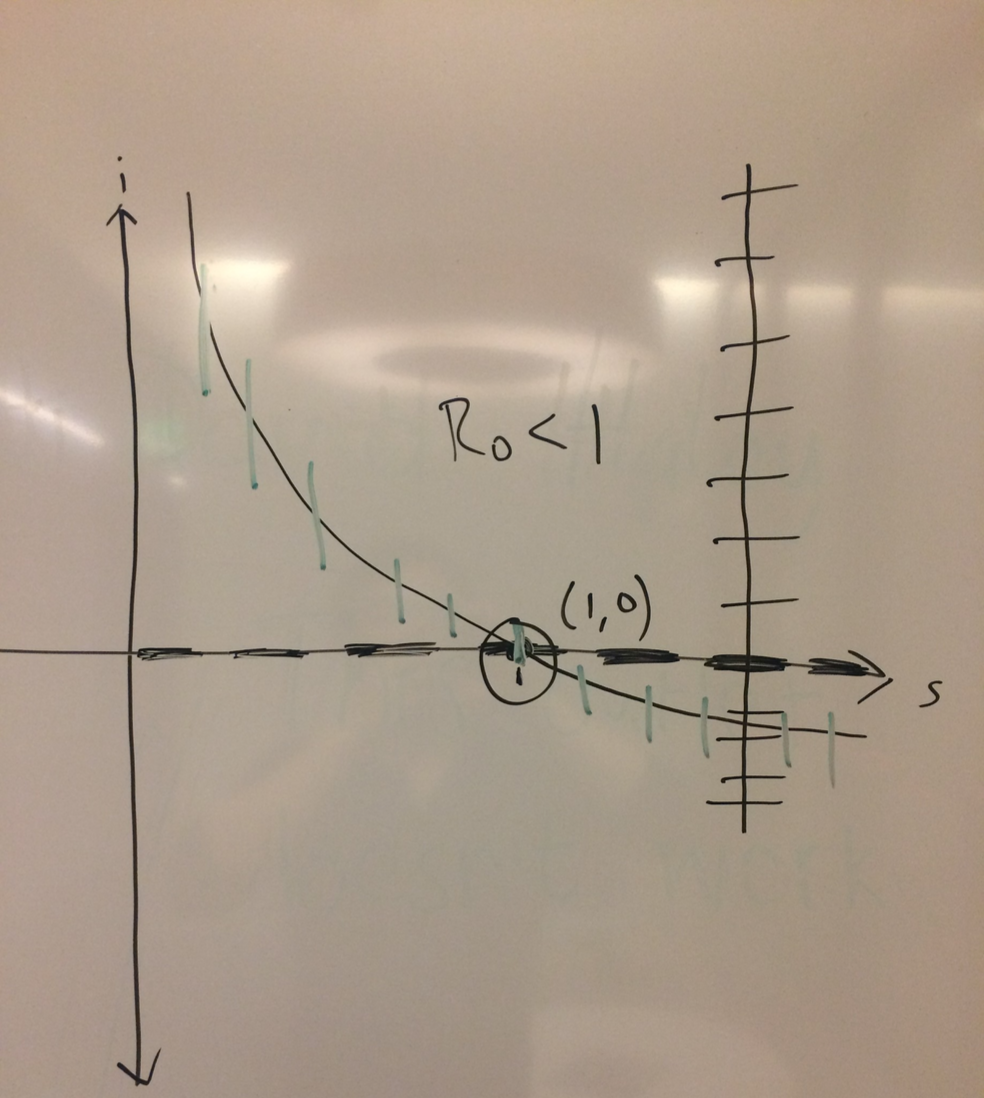 i
R₀ < 1
(1,0)
1
s